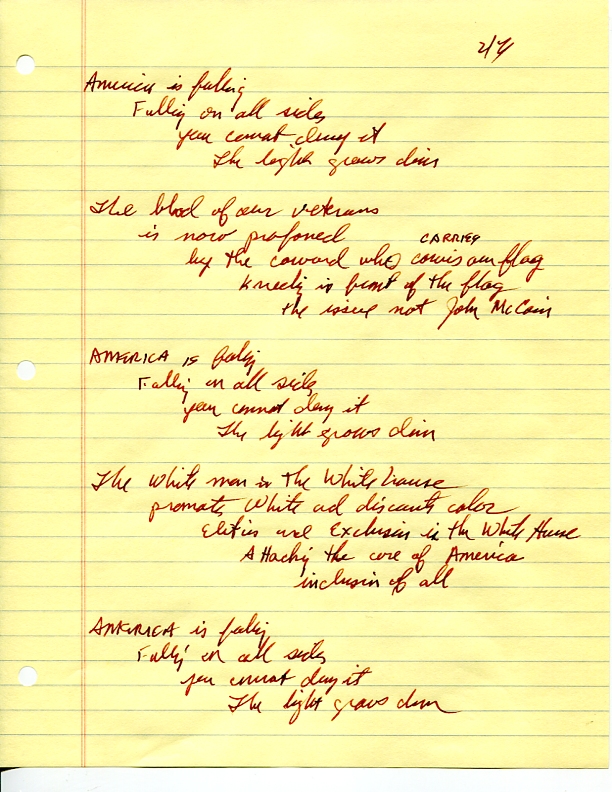 America is falling
Falling on all sides
you cannot deny it
The light grows dim
The blood of our veterans
is now profaned
CARRIES
by the coward who carries our flag
Kneeling in front of the flag
the issue not John McCain
AMERICA is falling
Falling on all sides
you cannot deny it
The light grows dim
The White man in The White house
promotes White and discounts color
Elitism and Exclusion in the White House
Attacking the core of America
inclusion of all
AMERICA is falling
Falling on all sides
you cannot deny it
The light grows dim